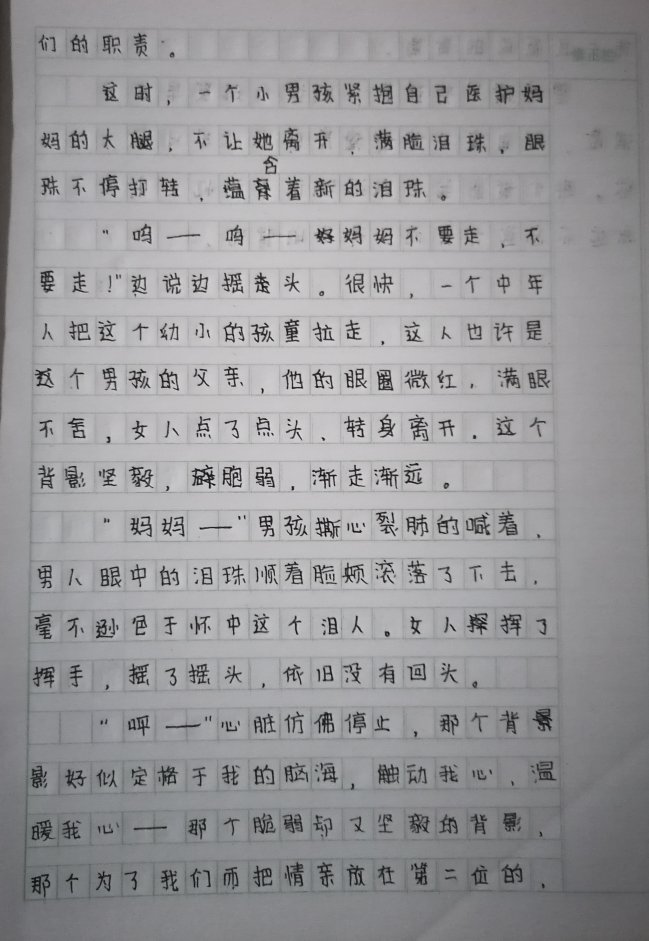 们的职责。
这时，一个小男孩紧抱自己医护妈
妈的大腿，不让她离开，满脸泪珠，眼
含
珠不停打转，蕴着新的泪珠。
“呜——呜——妈妈不要走，不
要走！”边说边摇头。很快，一个中年
人把这个幼小的孩童拉走，这人也许是
这个男孩的父亲，他的眼圈微红，满眼
不舍，女人点了点头，转身离开。这个
背影坚毅，脆弱，渐走渐远。
“妈妈——”男孩撕心裂肺的喊着，
男人眼中的泪珠顺着脸颊滚落了下去，
毫不逊色于怀中这个泪人。女人挥了
挥手，摇了摇头，依旧没有回头。
“呯——”心脏仿佛停止，那个背
影好似定格于我的脑海，触动我心、温
暖我心——那个脆弱却又坚毅的背影，
那个为了我们而把情亲放在第二位的，